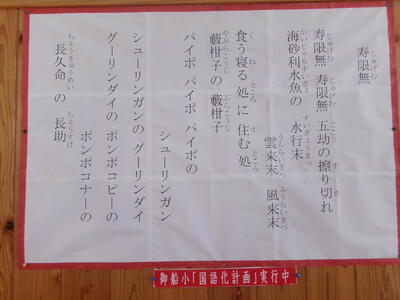 寿限無
寿限無 寿限無 五劫の擦り切れ
海砂利水魚の 水行末
雲来末 風来末
食う寝る処に 住む処
藪柑子の 藪柑子
パイポ パイポ パイポの
シューリンガン
シューリンガンの グーリンダイ
グーリンダイの ポンポコピーの
ポンポコナーの
長久命 の 長助
御船小「国語化計画」実行中